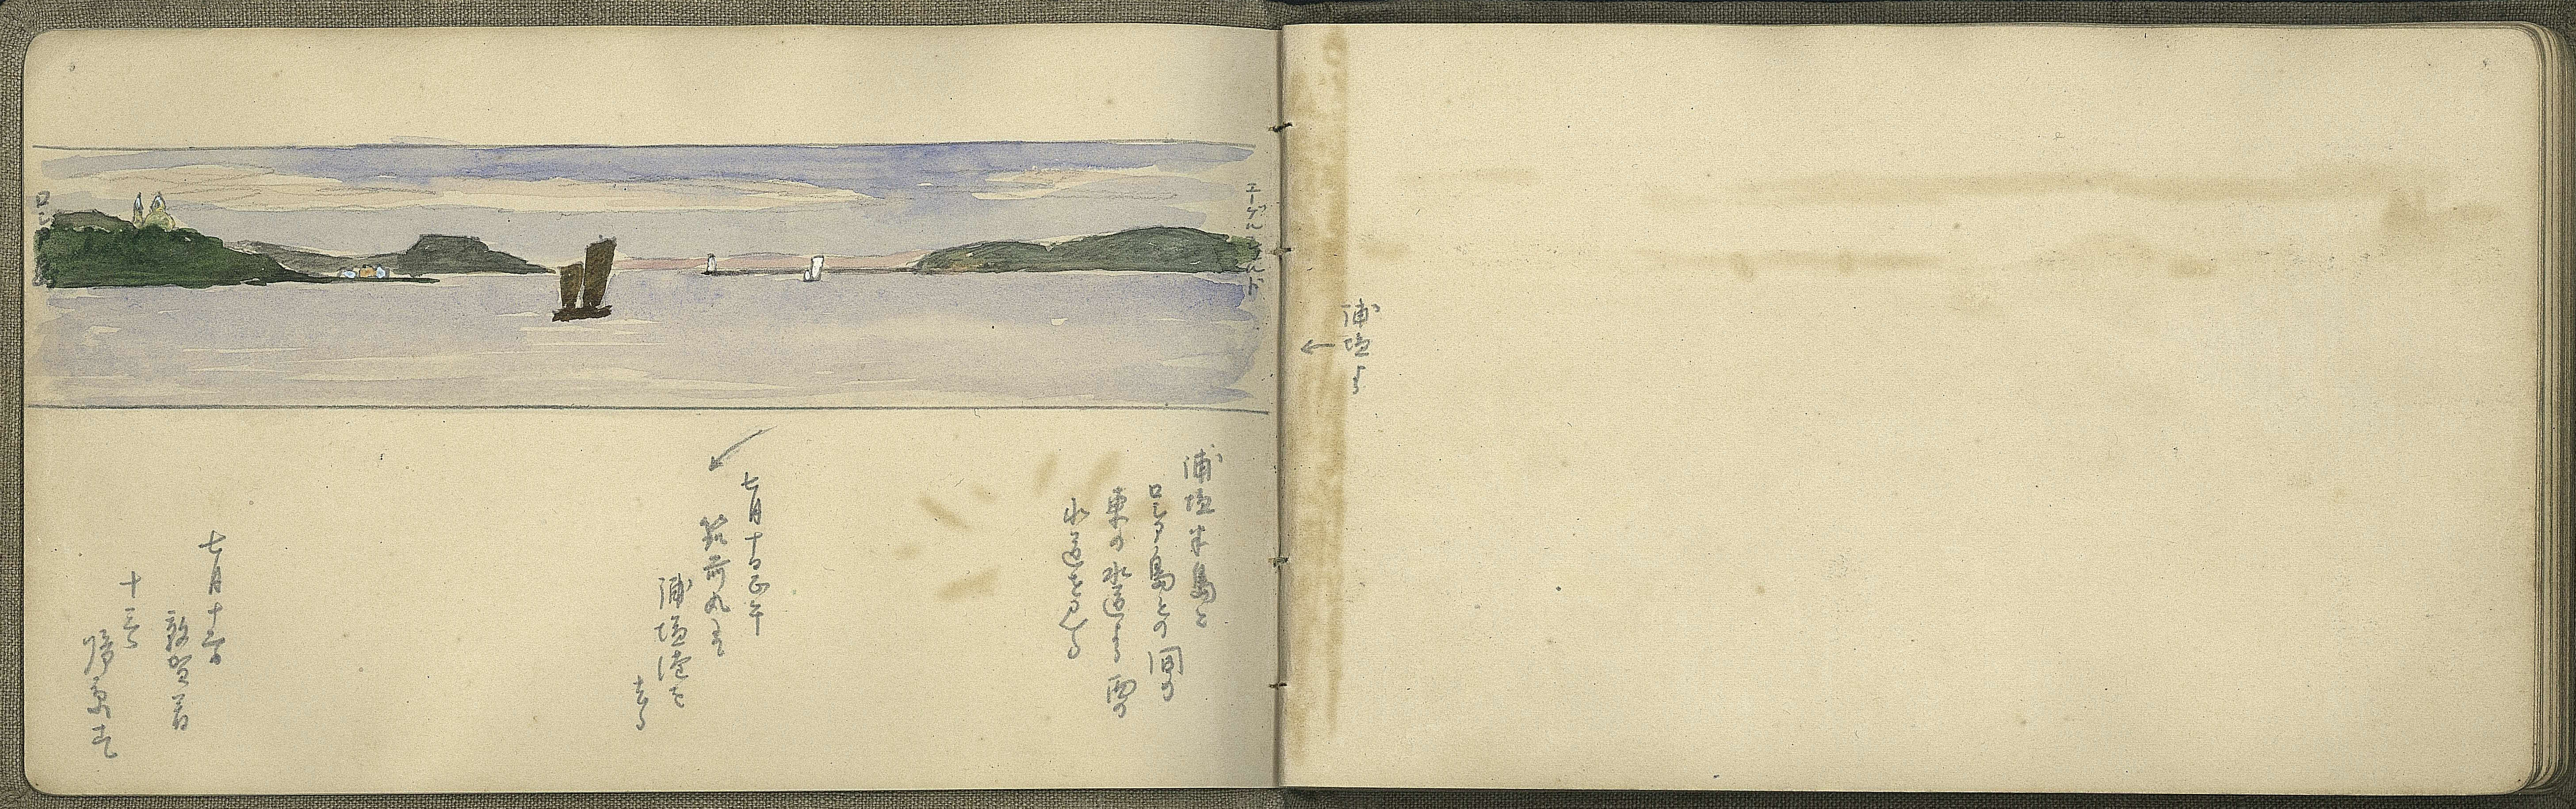 浦塩よ
エーゲルシェルド
浦塩半島と
ロシア島との間の
東の水道より西の
水道を見る
七月十一日正午
筑前丸にて
浦塩港を
去る
七月十三日
敦賀着
帰京す